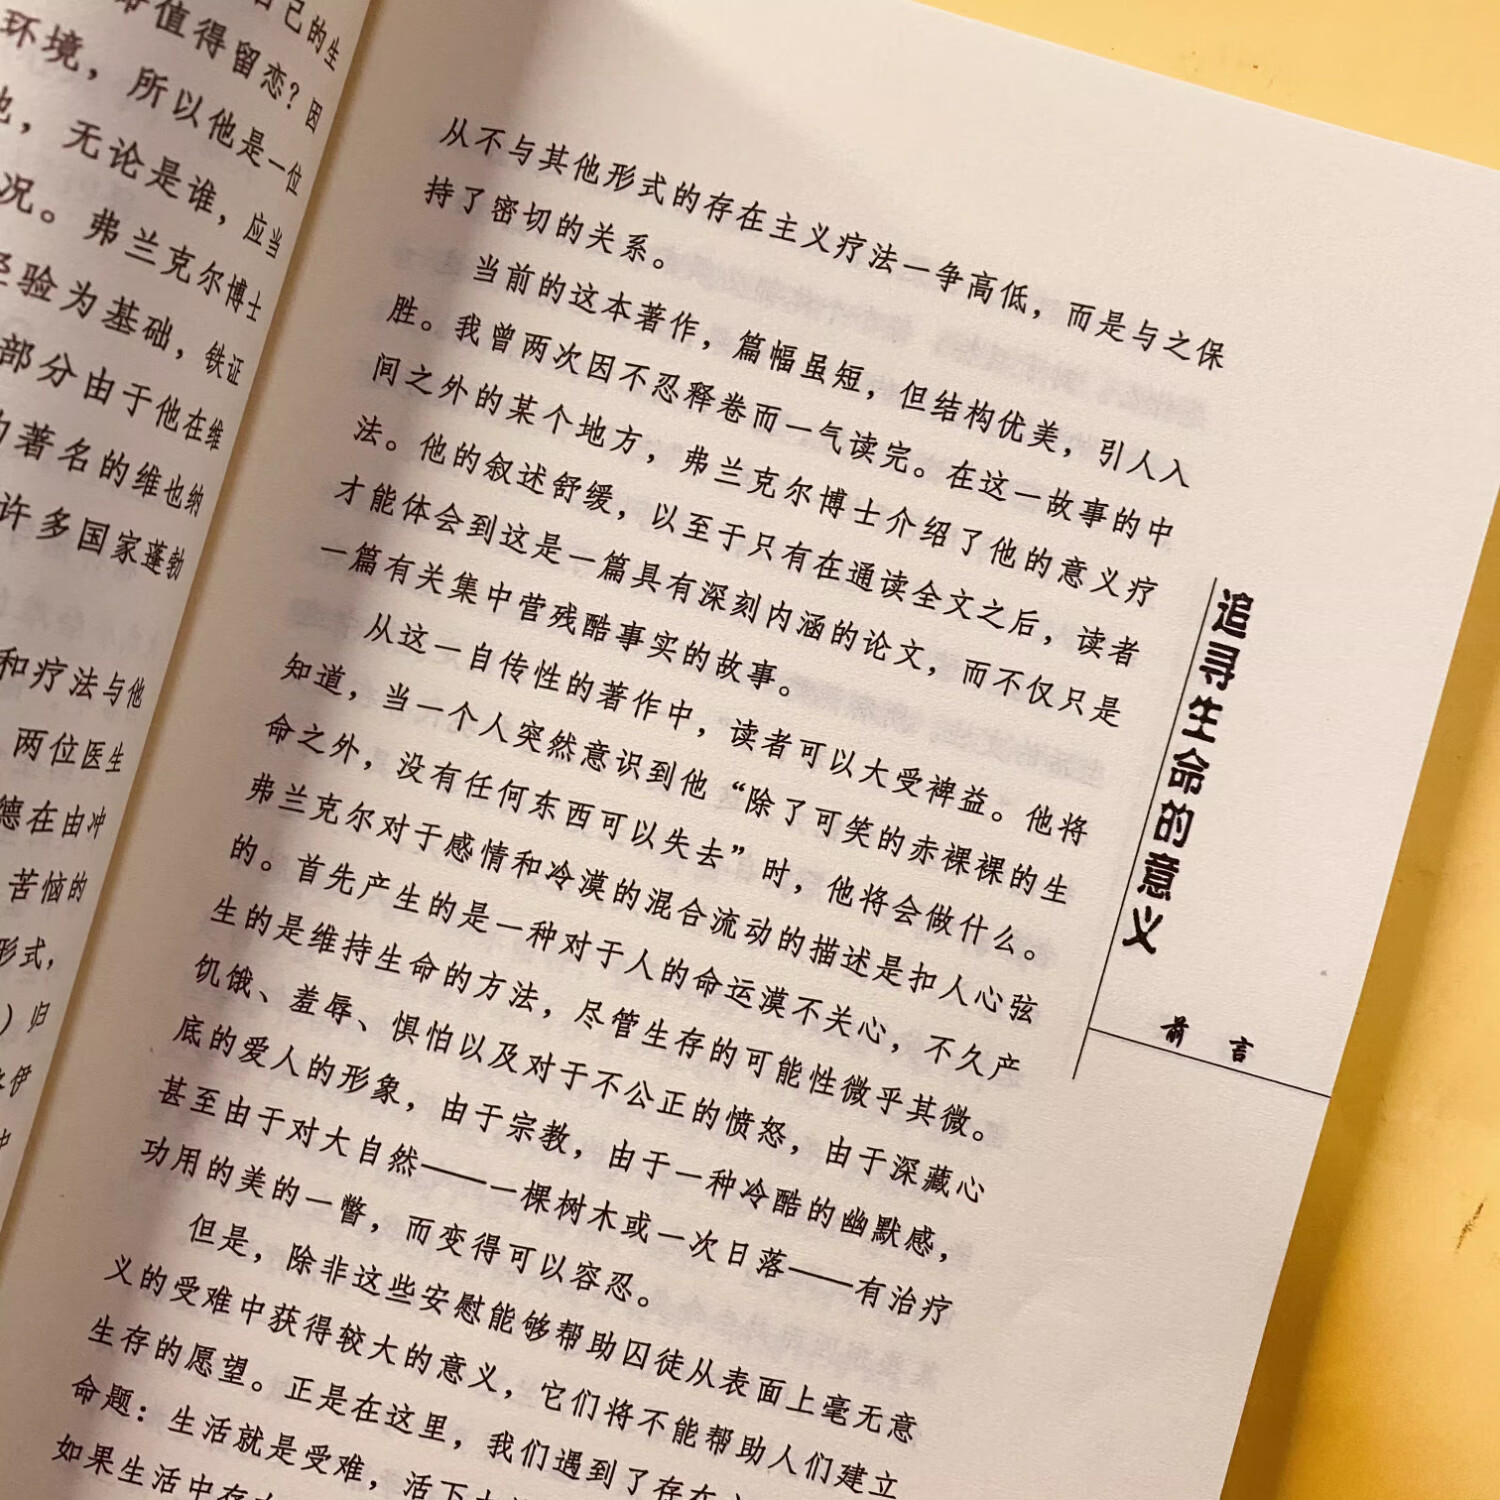 己的生
值得留恋？因
环境，所以他是一位
，无论是谁，应当
况。弗兰克尔博士
经验为基础，铁证
部分由于他在维
著名的维也纳
许多国家蓬勃
和疗法与他
两位医生
德在由冲
苦恼的
形式，
）归
伊
从不与其他形式的存在主义疗法一争高低，而是与之保
持了密切的关系。
当前的这本著作，篇幅虽短，但结构优美，引人入
胜。我曾两次因不忍释卷而一气读完。在这一故事的中
间之外的某个地方，弗兰克尔博士介绍了他的意义疗
法。他的叙述舒缓，以至于只有在通读全文之后，读者
才能体会到这是一篇具有深刻内涵的论文，而不仅只是
一篇有关集中营残酷事实的故事。
从这一自传性的著作中，读者可以大受裨益。他将
知道，当一个人突然意识到他“除了可笑的赤裸裸的生
命之外，没有任何东西可以失去”时，他将会做什么。
弗兰克尔对于感情和冷漠的混合流动的描述是扣人心弦
的。首先产生的是一种对于人的命运漠不关心，不久产
生的是维持生命的方法，尽管生存的可能性微乎其微。
饥饿、羞辱、惧怕以及对于不公正的愤怒，由于深藏心
底的爱人的形象，由于宗教，由于一种冷酷的幽默感，
甚至由于对大自然——一棵树木或一次日落——有治疗
功用的美的一瞥，而变得可以容忍。
但是，除非这些安慰能够帮助囚徒从表面上毫无意
义的受难中获得较大的意义，它们将不能帮助人们建立
生存的愿望。正是在这里，我们遇到了存在
命题：生活就是受难，活下
如果生活中存
追寻生命的意义
前言